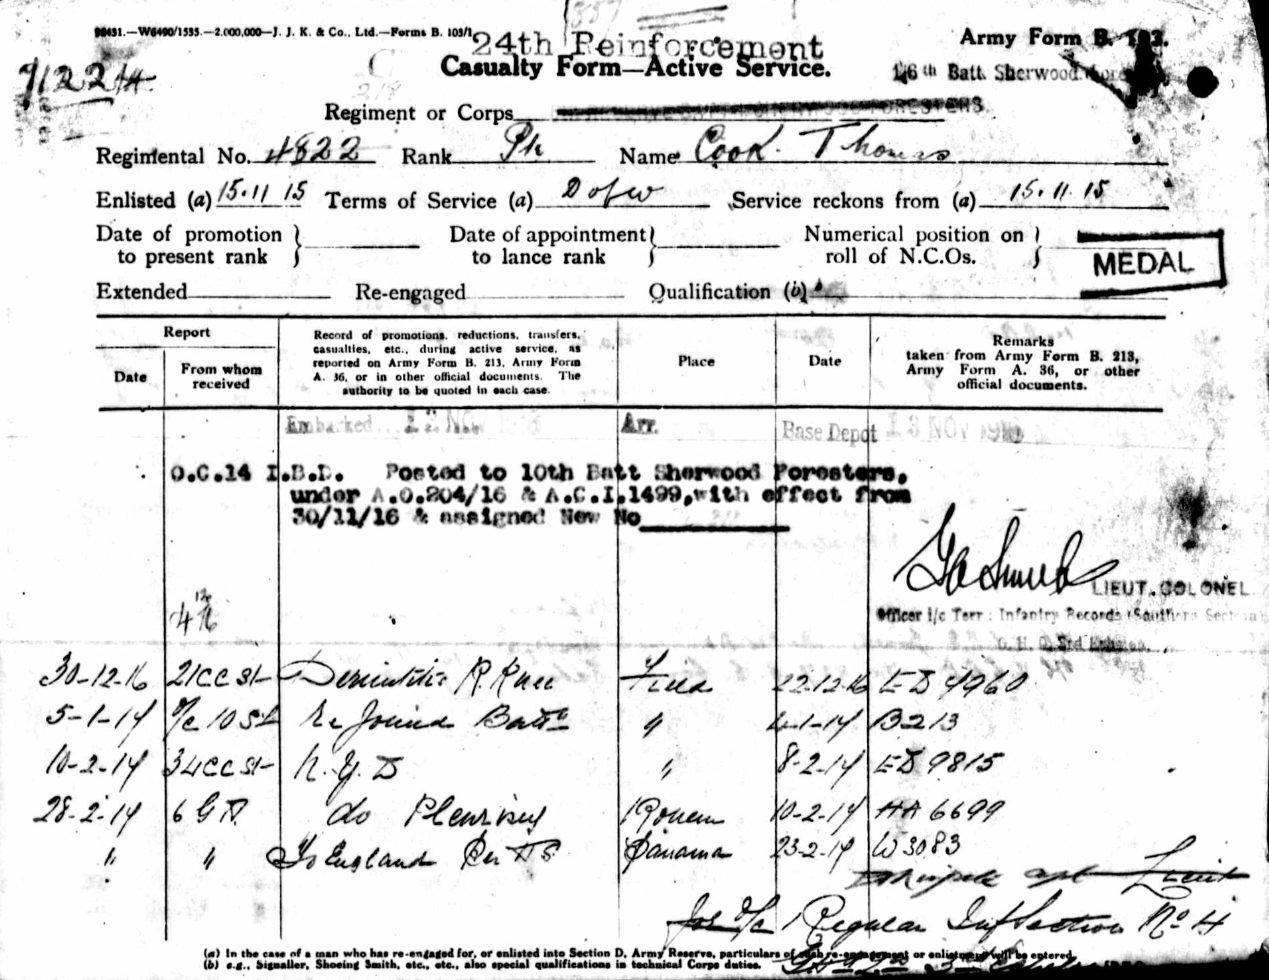 98431.—W6490/1535.—2,000,000—J. J. K. & Co., Ltd.—Forms B. 103/1
24th Reinforcement
Army Form B. 103.
Casualty Form—Active Service.
1/6th Batt. Sherwood
71224
Regiment or Corps FORESTERS
Regimental No. 4822 Rank Pte Name Cook Thomas
Enlisted (a) 15.11.15 Terms of Service (a) D of W Service reckons from (a) 15.11.15
Date of promotion to present rank
Date of appointment to lance rank
Numerical position on roll of N.C.Os.
MEDAL
Extended Re-engaged Qualification (b)
Report
Date
From whom received
Record of promotions, reductions, transfers,
casualties, etc., during active service, as
reported on Army Form B. 213, Army Form
A. 36, or in other official documents. The
authority to be quoted in each case.
Place
Date
Remarks
taken from Army Form B. 213,
Army Form A. 36, or other
official documents.
Embarked 12 Nov Arr. Base Depot 13 NOV
O.C.14 I.B.D. Posted to 10th Batt Sherwood Foresters,
under A.O.204/16 & A.C.I.1499, with effect from
30/11/16 & assigned New No
LIEUT. COLONEL
Officer i/c Terr: Infantry Records (Southern Section)
G. H. Q. 3rd Echelon.
30-12-16 21 CC St R. Knee Field 22-12-16 ED 9960
5-1-17 O/C 10 St Re Joined Battn " 4-1-17 B213
10-2-17 34 CC St N.Y.D " 8-2-17 ED 9815
28-2-17 6 G.H. do Pleurisy Rouen 10-2-17 HA 6699
" " To England Per H.S. Panama 23-2-17 W3083
Lieut
for O/c Regular Inf Section No 4
(a) In the case of a man who has re-engaged for, or enlisted into Section D, Army Reserve, particulars of such re-engagement or enlistment will be entered.
(b) e.g., Signaller, Shoeing Smith, etc., etc., also special qualifications in technical Corps duties.